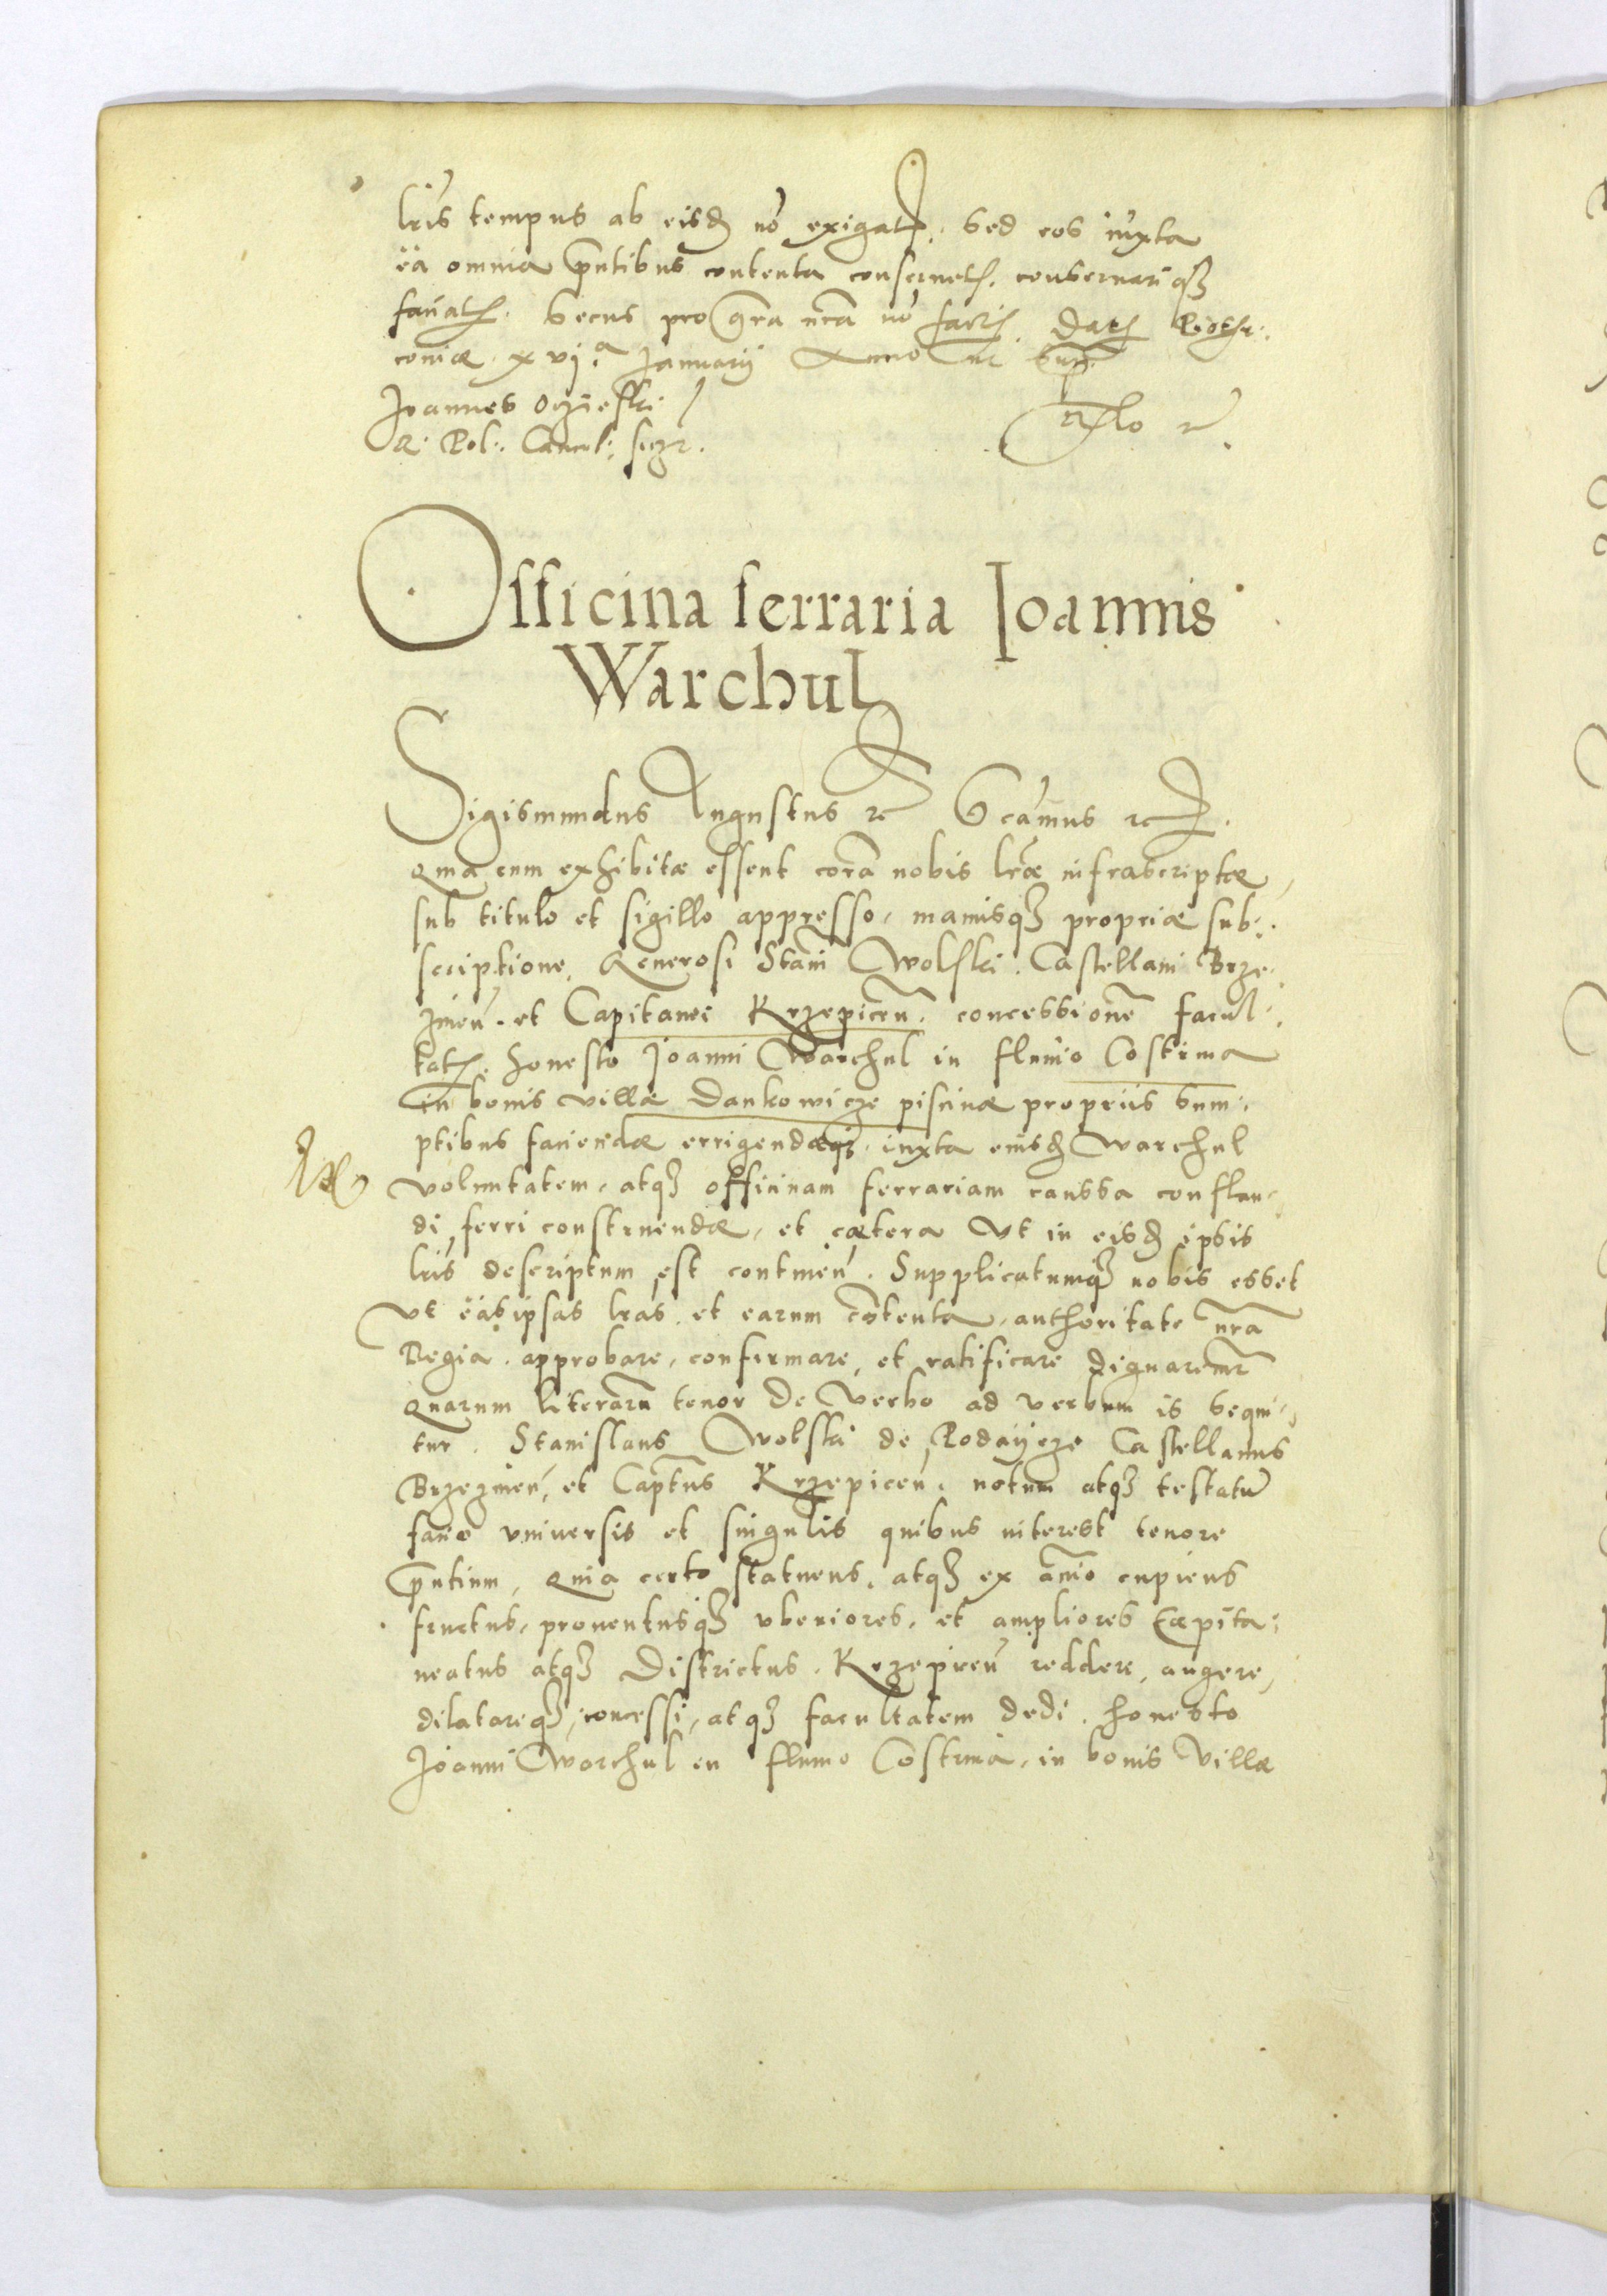 lris tempus ab eisd no exigat. Sed eos iuxta
ea omnia pntibus contenta conseruet. conseruariq3
faciat. Secus pro gra nra no factur. Dat Piotr:
coniæ. xvj.a Januarij Anno ut supra
Joannes Oczieski
R: Pol: Cancel: scr.
Rlo
Officina ferraria Joannis
Warchul
Sigismundus Augustus rc Scimus rc.
Quia cum exhibitæ essent cora nobis lræ infrascriptæ
sub titulo et sigillo appresso, manusq3 propriæ sub:
scriptione, Generosi Stani Wolski. Castellani Brze:
zinen. et Capitanei Krzepicen. concessione facul:
tat. honesto Joanni Warchul in fluuio Costrma
in bonis villæ Dankowicze piscinæ propriis sum:
ptibus faciendæ errigendæq3. iuxta eiusd Warchul
voluntatem, atq3 officinam ferrariam caussa conflan:
di ferri construendæ, et cætera Ut in eisd ipsis
lris descriptum est continen. Supplicatumq3 nobis esset
Ut eas ipsas lras. et earum cotenta, authoritate nra
Regia. approbare, confirmare, et ratificare dignaremr
Quarum literaru tenor de verbo ad verbum is sequi:
tur. Stanislaus Wolski de Podaycze Castellanus
Brzezinen, et Captus Krzepicen. notum atq3 testatu
facio vniuersis et singulis quibus interest tenore
pntium, Quia certo statuens, atq3 ex animo cupiens
fructus, prouentusq3 vberiores, et ampliores Capita:
neatus atq3 Districtus. Krzepicen reddere, augere,
dilatareq3, concessi, atq3 facultatem dedi. honesto
Joanni Warchul in fluuio Costrma, in bonis Villæ